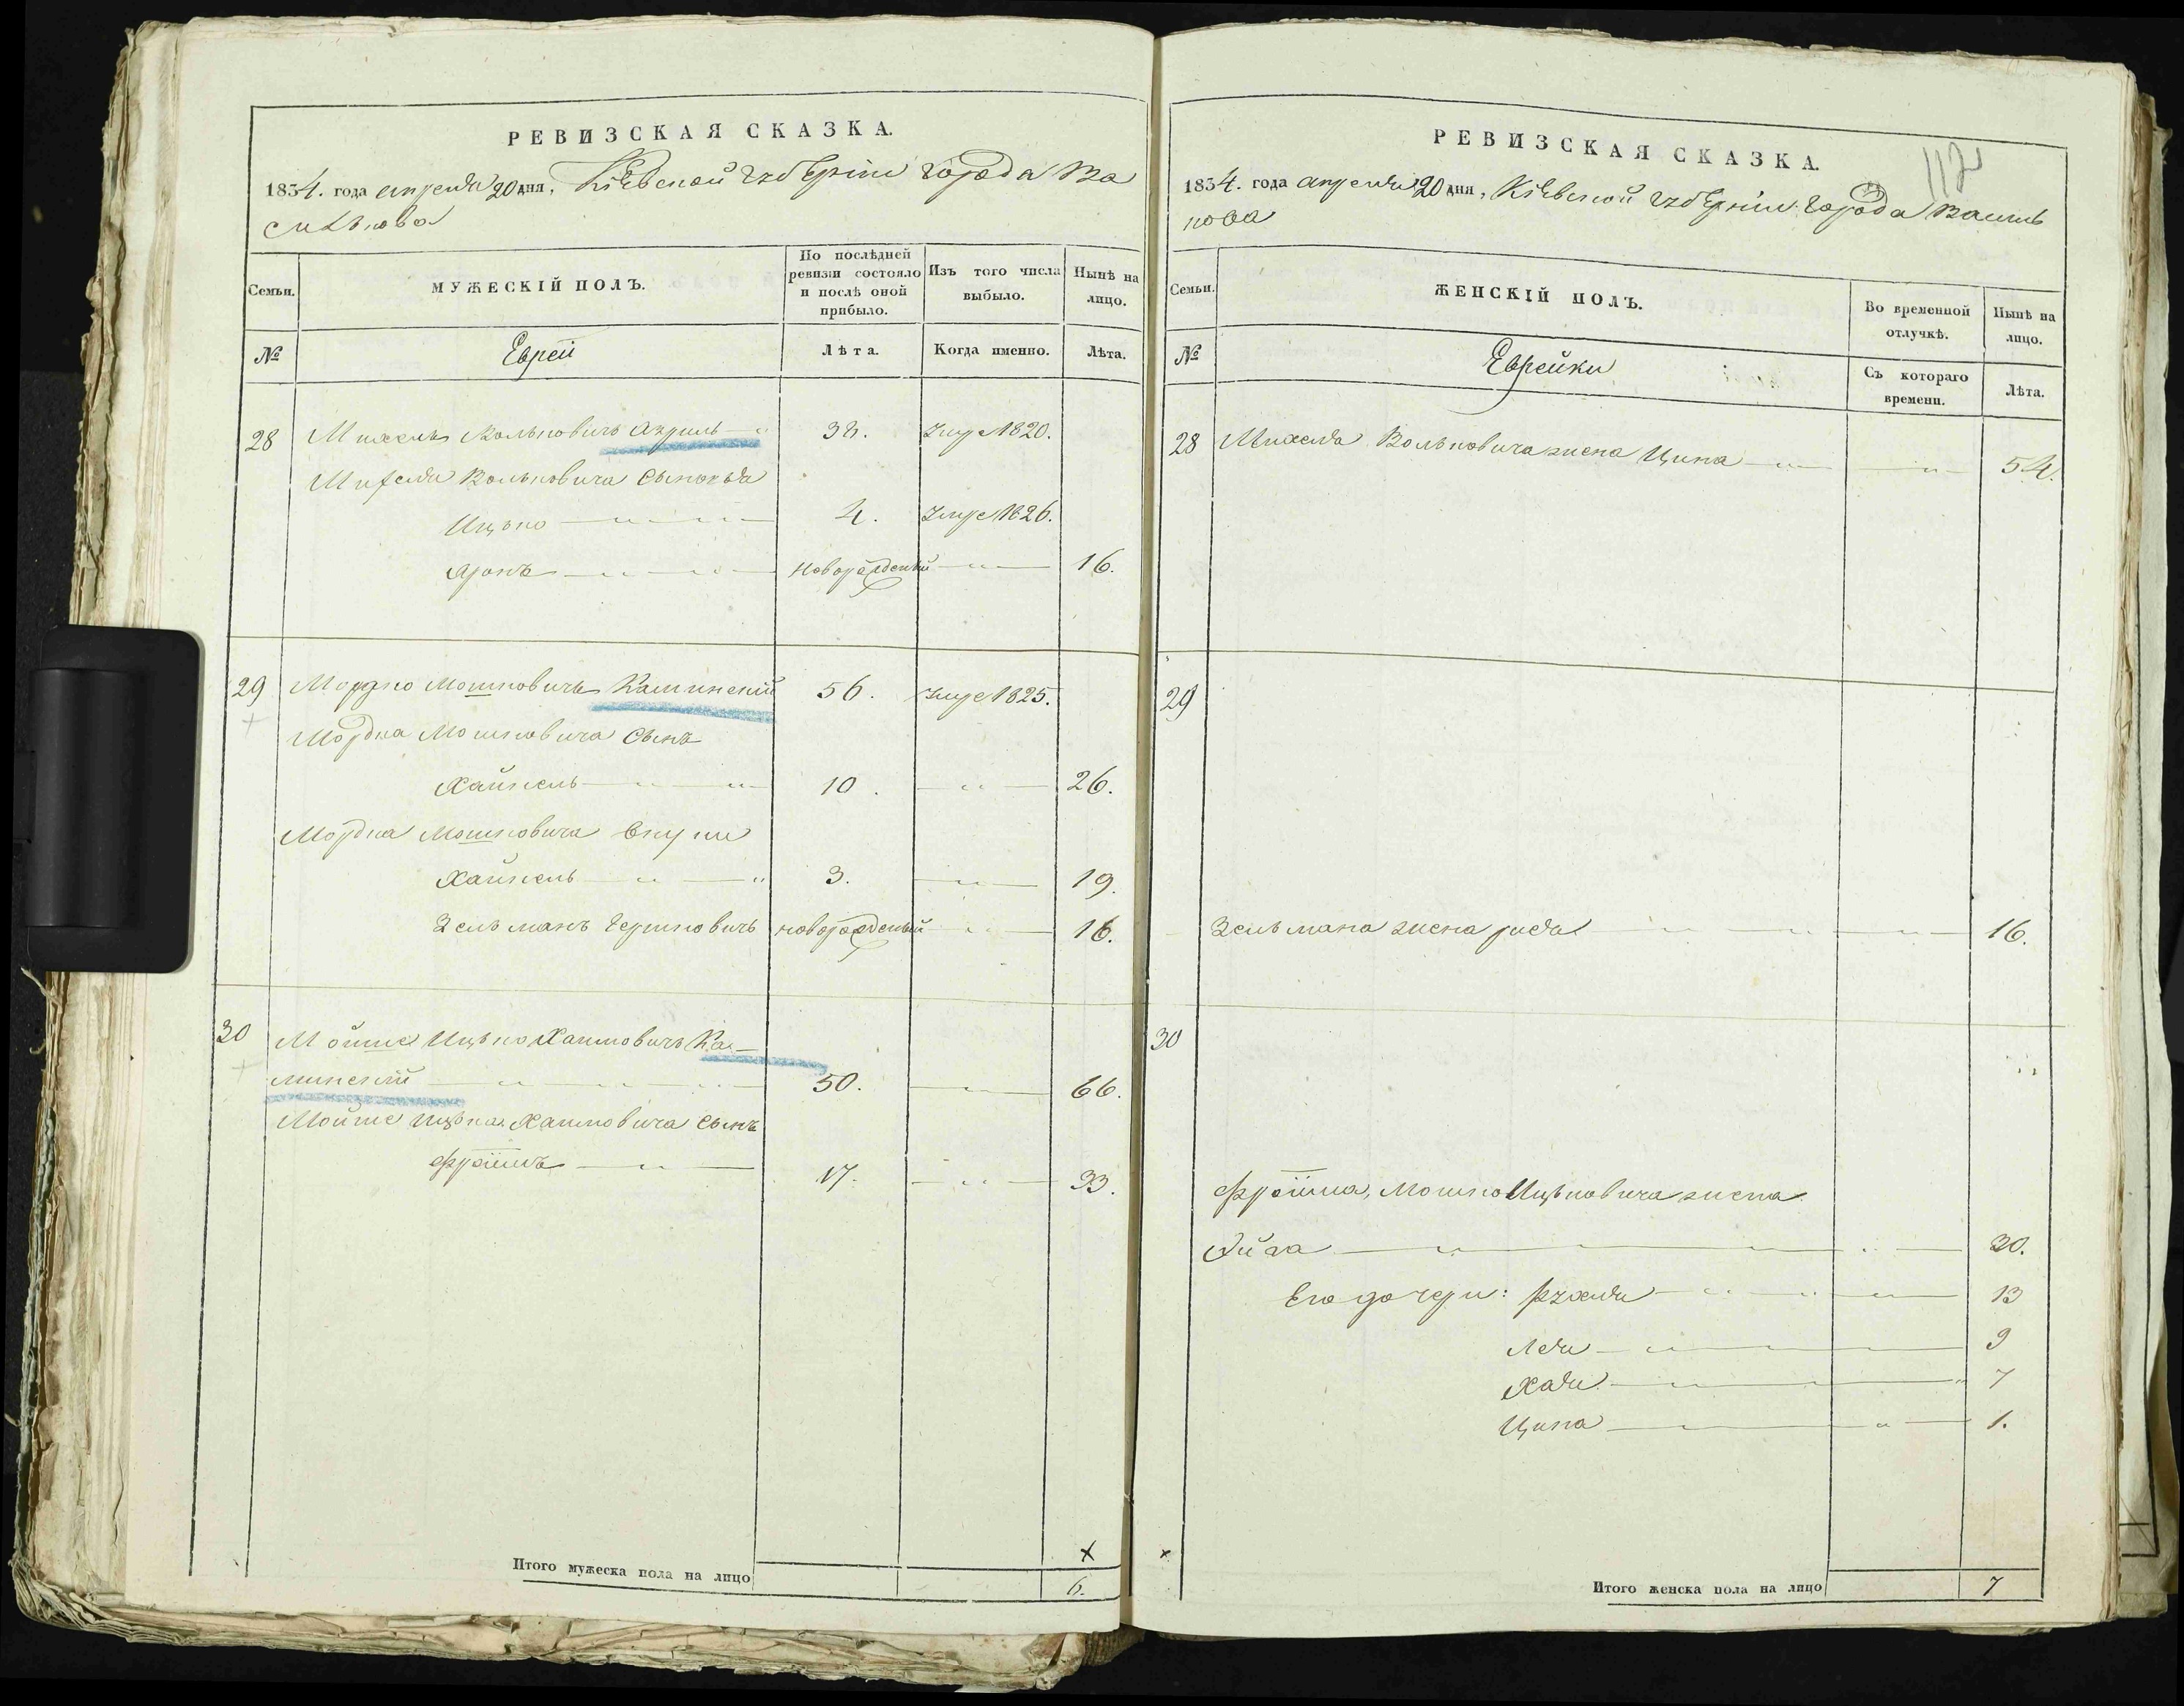 РЕВИЗСКАЯ СКАЗКА.
1834. года апреля 20 дня, Кіевской губерніи города Ва
силькова
Семьи.
МУЖЕСКІЙ ПОЛЪ.
По послѣдней
ревизіи состояло
и послѣ оной
прибыло.
Изъ того числа
выбыло.
Нынѣ на
лицо.
№
Евреи
Лѣта.
Когда именно.
Лѣта.
28 Михель Вольковичъ 38. Умре 1820.
Михеля Вольковича сыновья
Ицько 4. Умре 1826.
Аронъ новорожденный 16.
29 Мордко Мошковичъ Каминский 56. Умре 1825.
Мордка Мошковича сынъ
Хайкель 10. 26.
Мордка Мошковича внуки
Хайкель 3. 19.
Зельманъ Гершковичъ новорожденный 16.
30 Мойше Ицько Хаимовичъ Ка-
минский 50. 66.
Мойше Ицька Хаимовича сынъ
Фроимъ 17. 33.
Итого мужеска пола на лицо 6.
РЕВИЗСКАЯ СКАЗКА.
112
1834. года апреля 20 дня, Кіевской губерніи города Василь
кова
Семьи.
ЖЕНСКІЙ ПОЛЪ.
Во временной
отлучкѣ.
Нынѣ на
лицо.
№
Еврейки
Съ котораго
времени.
Лѣта.
28 Михеля Вольковича жена Ципа 54.
29
Зельмана жена 16.
30
Фроима, Мошко Ицьковича жена
30.
Его дочери: Рухля 13
Лея 9
Хая 7
Ципа 1.
Итого женска пола на лицо 7